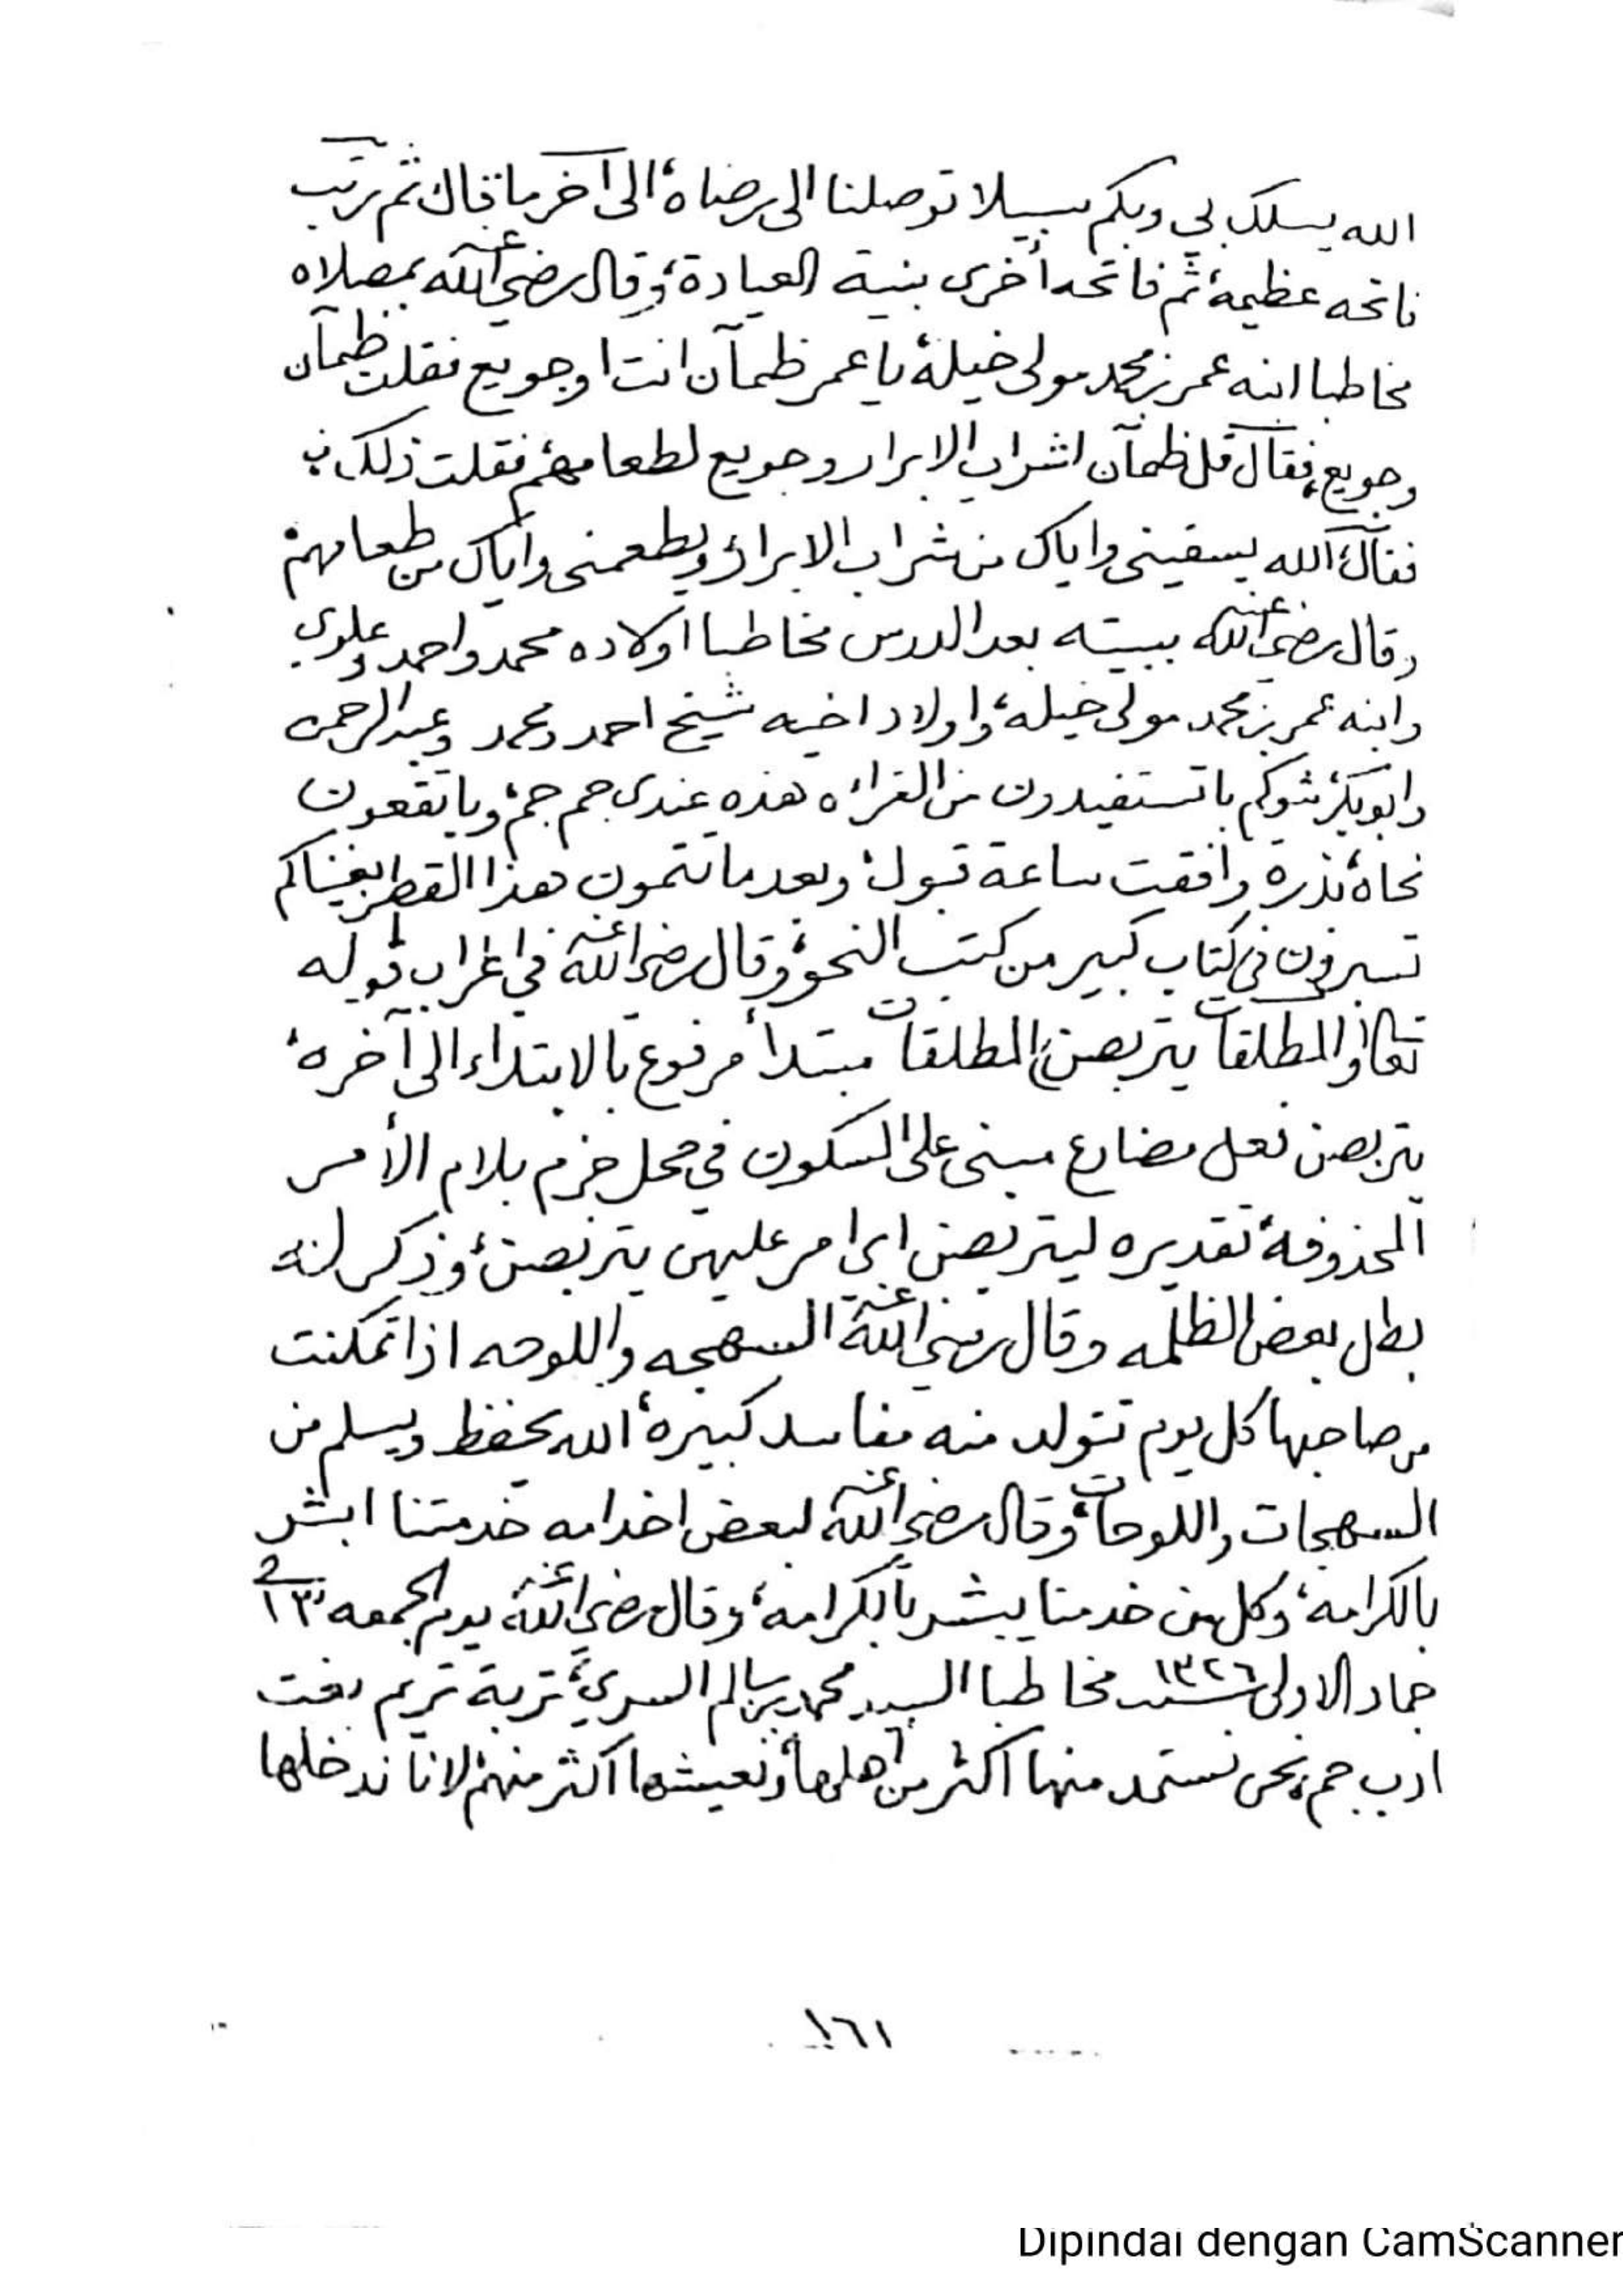 الله يسلك بي وبكم سبيلا توصلنا الى رضاه، الى آخر ما قال، ثم رتب
فاتحه عظيمة، ثم فاتحه أخرى بنية العيادة، وقال رضي الله عنه بمصلاه
مخاطبا ابنه عمر بن محمد مولى خيلة، يا عمر ظمآن انت او جويع فقلت ظمآن
وجويع، فقال قل ظمآن لشراب الابرار وجويع لطعامهم، فقلت ذلك،
فقال، الله يسقيني واياك من شراب الابرار، ويطعمني واياك من طعامهم،
وقال رضي الله عنه ببيته بعد الدرس مخاطبا اولاده محمد واحمد وعلوي
وابنه عمر بن محمد مولى خيله، واولاد اخيه شيخ احمد ومحمد وعبدالرحمن
وابوبكر، شوكم باتستفيدون من القراءه هذه عندي جم جم، وباتقعون
نحاه، نذرة وافقت ساعة قبول، وبعد ما تتمون هذا القطر بغيناكم
تسرون في كتاب كبير من كتب النحو، وقال رضي الله عنه في اعراب قوله
تعالى والمطلقات يتربصن، المطلقات مبتدأ مرفوع بالابتداء الى آخره،
يتربصن فعل مضارع مبني على السكون في محل جزم بلام الأمر
المحذوفة، تقديره ليتربصن اي امر عليهن يتربصن، وذكر له
بطل بعض الظلمه وقال رضي الله عنه السهجه واللوحه اذا تمكنت
من صاحبها كل يوم تتولد منه مفاسد كبيرة، الله يحفظ ويسلم من
السهجات واللوحات، وقال رضي الله عنه لبعض اخدامه خدمتنا ابشر
بالكرامه، وكل من خدمنا يبشر بالكرامه، وقال رضي الله عنه يوم الجمعه ١٣ في
جماد الاولى سنة ١٣٢٦ مخاطبا السيد محمد بن سالم السري، تربة تريم
ادب جم، نحن نستمد منها اكثر من أهلها، ونعيشها اكثر منهم، لانا ندخلها
١٦١
Dipindai dengan CamScanner